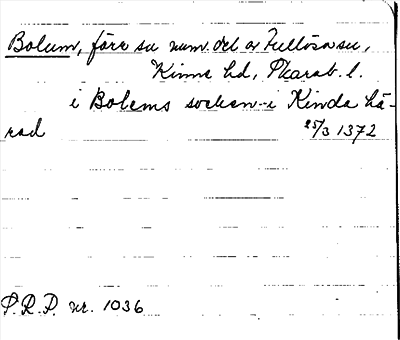 Bolum, före su num. del av Fullösa su,
Kinne hd, Skarab. l.
i Bolems socken i Kinda hä-
rad 25/3 1372
P.R.P. nr. 1036